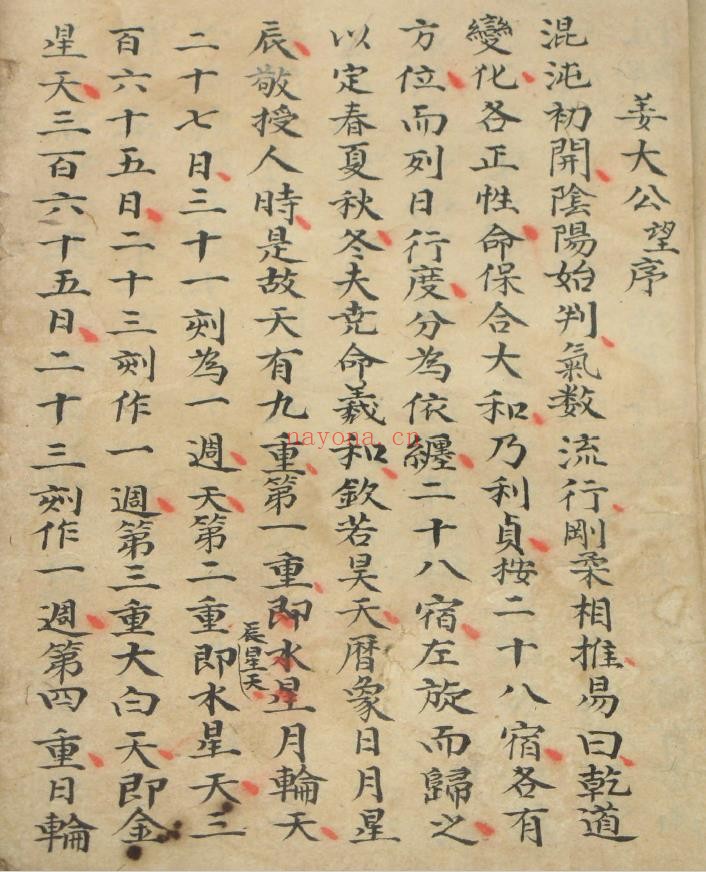 姜大公望序
混沌初開陰陽始判氣数流行剛柔相推易曰乾道
變化各正性命保合大和乃利貞按二十八宿各有
方位而列日行度分為依纏二十八宿左旋而歸之
以定春夏秋冬夫尭命羲和欽若昊天暦象日月星
辰敬授人時是故天有九重第一重即水星月輪天
二十七日三十一刻為一週天第二重即水星天三
辰星天
百六十五日二十三刻作一週第三重大白天即金
星天三百六十五日二十三刻作一週第四重日輪
nayona.cn